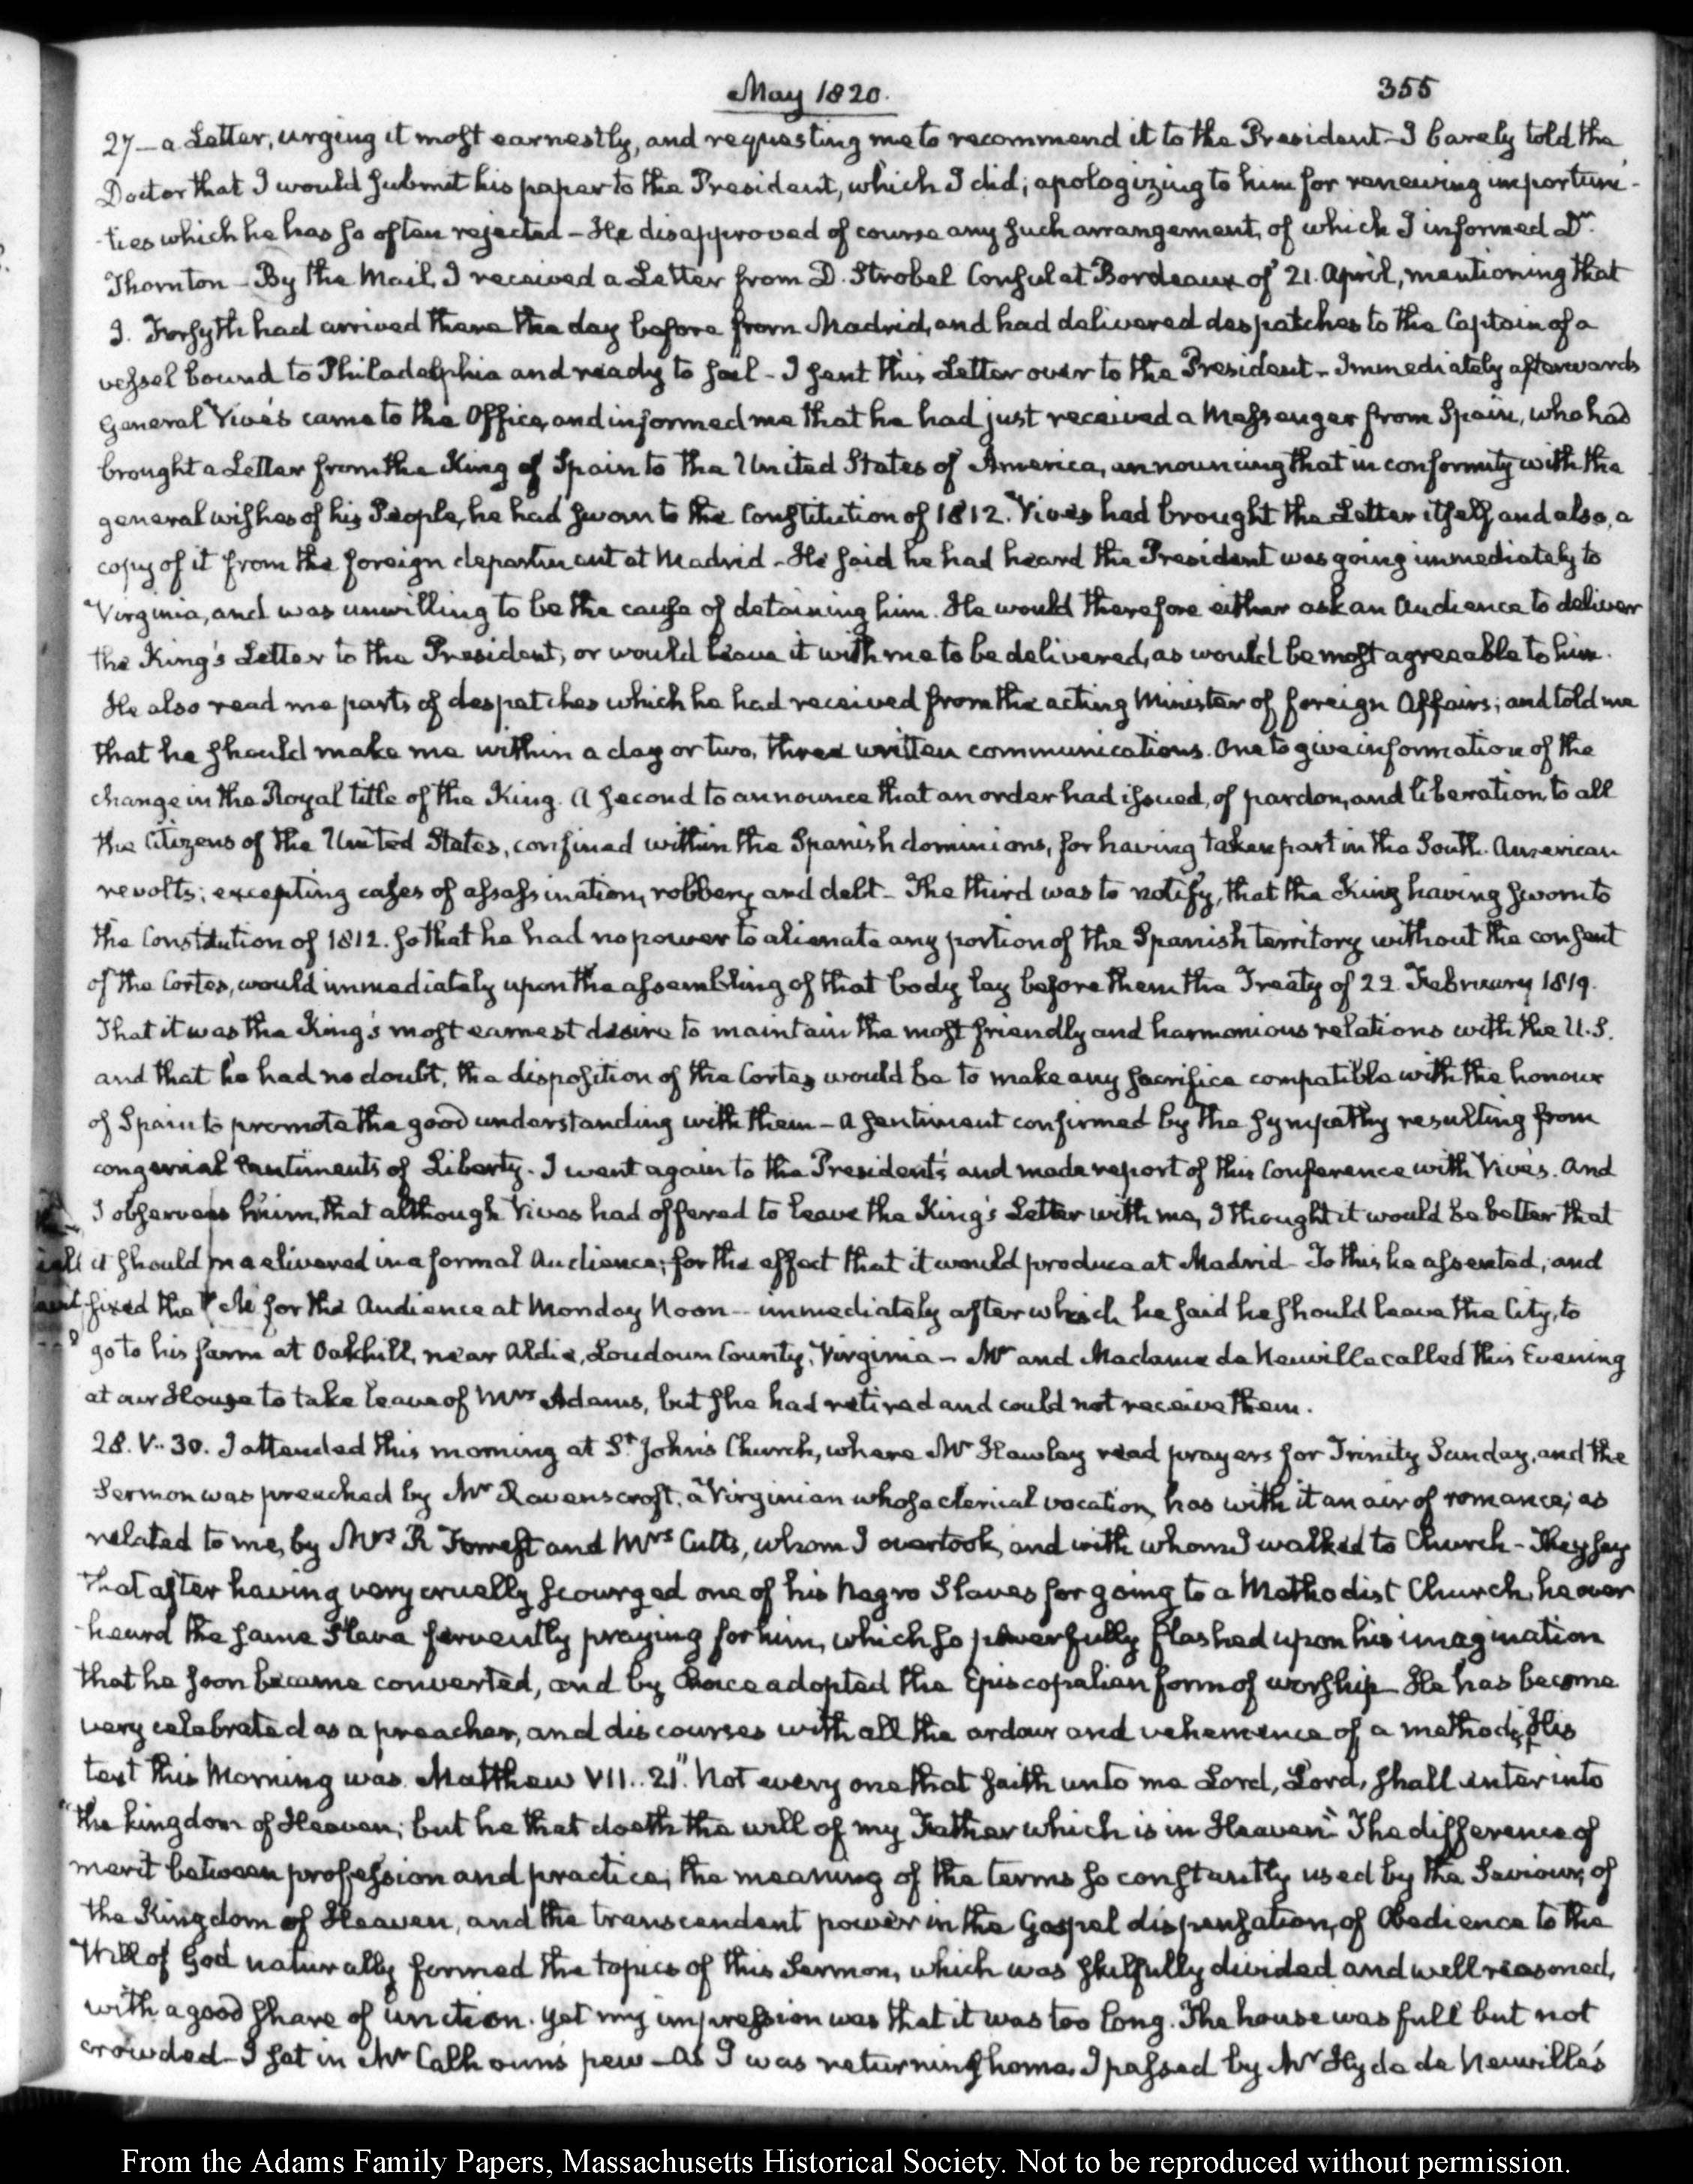 May 1820.
355
27 — a Letter, urging it most earnestly, and requesting me to recommend it to the President — I barely told the
Doctor that I would submit his paper to the President, which I did; apologizing to him for renewing importuni-
-ties which he has so often rejected — He disapproved of course any such arrangement, of which I informed Dr.
Thornton — By the Mail, I received a Letter from D. Strobel Consul at Bordeaux of 21. April, mentioning that
J. Forsyth had arrived there the day before from Madrid, and had delivered despatches to the Captain of a
vessel bound to Philadelphia and ready to sail — I sent this Letter over to the President — Immediately afterwards
General Vivés came to the Office, and informed me that he had just received a Messenger from Spain, who had
brought a Letter from the King of Spain to the United States of America, announcing that in conformity with the
general wishes of his People, he had sworn to the Constitution of 1812. Vives had brought the Letter itself, and also, a
copy of it from the foreign department at Madrid — He said he had heard the President was going immediately to
Virginia, and was unwilling to be the cause of detaining him. He would therefore either ask an Audience to deliver
the King's Letter to the President, or would leave it with me to be delivered, as would be most agreeable to him.
He also read me parts of despatches which he had received from the acting Minister of foreign Affairs; and told me
that he should make me within a day or two, three written communications. One to give information of the
change in the Royal title of the King. A second to announce that an order had issued, of pardon, and liberation, to all
the Citizens of the United States, confined within the Spanish dominions, for having taken part in the South-American
revolts; excepting cases of assassination, robbery and debt — The third was to notify, that the King having sworn to
the Constitution of 1812. so that he had no power to alienate any portion of the Spanish territory without the consent
of the Cortes, would immediately upon the assembling of that body lay before them the Treaty of 22. February 1819.
That it was the King's most earnest desire to maintain the most friendly and harmonious relations with the U.S.
and that he had no doubt, the disposition of the Cortes would be to make any sacrifice compatible with the honour
of Spain to promote the good understanding with them — a sentiment confirmed by the sympathy resulting from
congenial sentiments of Liberty. I went again to the President's and made report of this Conference with Vivés. And
I observed to him, that although Vives had offered to leave the King's Letter with me, I thought it would be better that
it should be delivered in a formal Audience; for the effect that it would produce at Madrid — To this he assented, and
fixed the for the Audience at Monday Noon — immediately after which he said he should leave the City, to
go to his farm at Oakhill, near Aldie, Loudoun County, Virginia — Mr and Madame de Neuville called this Evening
at our House to take leave of Mrs Adams, but she had retired and could not receive them.
28. V.. 30. I attended this morning at St. John's Church, where Mr Hawley read prayers for Trinity Sunday, and the
Sermon was preached by Mr Ravenscroft, a Virginian whose clerical vocation, has with it an air of romance; as
related to me, by Mrs R Forrest and Mrs Cutts, whom I overtook, and with whom I walked to Church — They say
that after having very cruelly scourged one of his Negro Slaves for going to a Methodist Church, he over
-heard the same Slave fervently praying for him, which so powerfully flashed upon his imagination
that he soon became converted, and by choice adopted the Episcopalian form of worship — He has become
very celebrated as a preacher, and discourses with all the ardour and vehemence of a methodist. His
text this Morning was. Matthew VII.. 21 "Not every one that saith unto me Lord, Lord, shall enter into
"the kingdom of Heaven; but he that doeth the will of my Father which is in Heaven" The difference of
merit between profession and practice; the meaning of the terms so constantly used by the Saviour, of
the Kingdom of Heaven, and the transcendent power in the Gospel dispensation, of Obedience to the
Will of God naturally formed the topics of this Sermon, which was skilfully divided and well reasoned,
with a good share of unction. Yet my impression was that it was too long. The house was full but not
crowded — I sat in Mr Calhoun's pew — As I was returning home, I passed by Mr Hyde de Neuville's
From the Adams Family Papers, Massachusetts Historical Society. Not to be reproduced without permission.